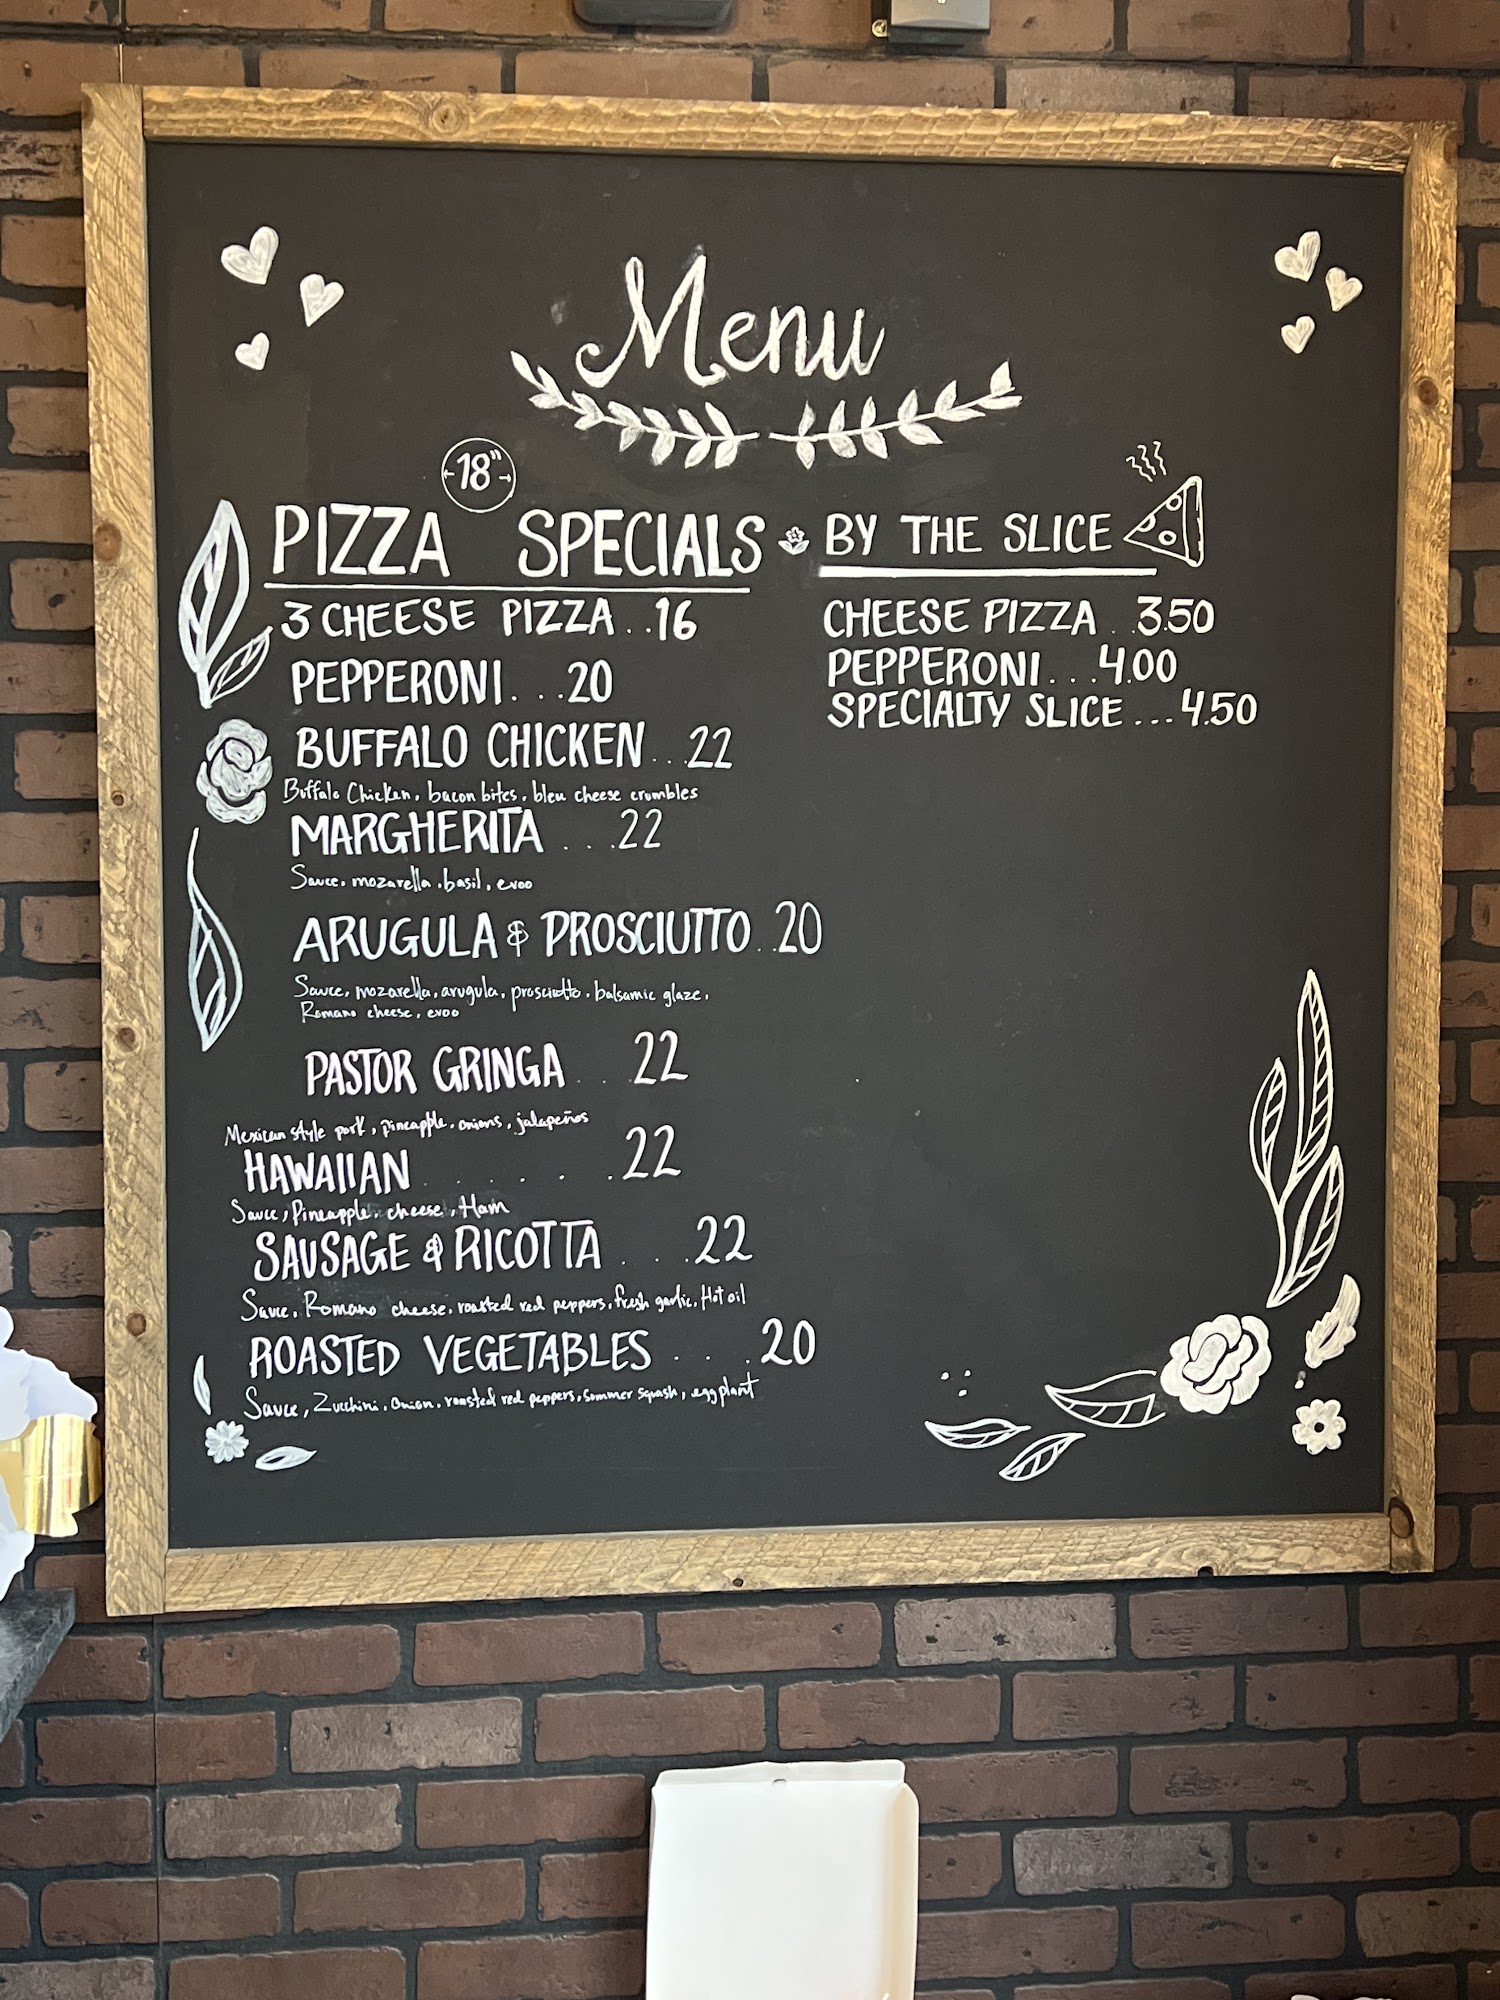 Menu
18"
PIZZA SPECIALS
3 CHEESE PIZZA ..16
PEPPERONI...20
BUFFALO CHICKEN...22
Buffalo Chicken, bacon bites, bleu cheese crumbles
MARGHERITA ...22
Sauce, mozarella, basil, evoo
ARUGULA & PROSCIUTTO..20
Sauce, mozarella, arugula, prosciutto, balsamic glaze,
Romano cheese, evoo
PASTOR GRINGA .. 22
Mexican style pork, pineapple, onions, jalapeños
HAWAIIAN ......22
Sauce, Pineapple, cheese, Ham
SAUSAGE & RICOTTA ...22
Sauce, Romano cheese, roasted red peppers, fresh garlic, Hot oil
ROASTED VEGETABLES ...20
Sauce, Zucchini, Onion, roasted red peppers, summer squash, eggplant
BY THE SLICE
CHEESE PIZZA ..3.50
PEPPERONI...4.00
SPECIALTY SLICE...4.50